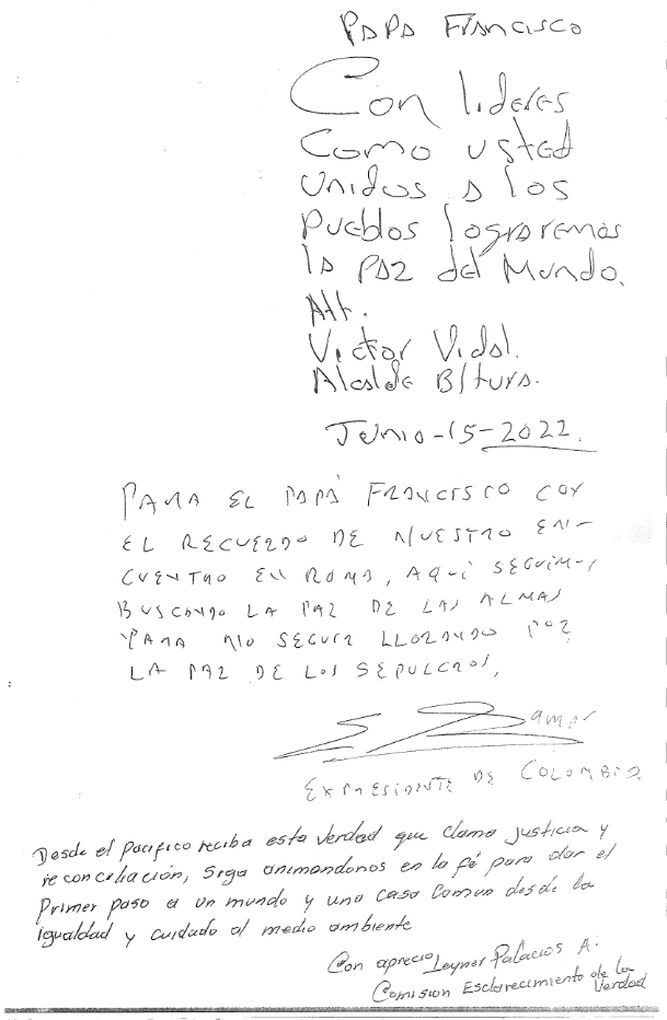 PAPA FRANCISCO
Con lideres
Como usted
unidos a los
Pueblos lograremos
la PAZ del Mundo.
Att.
Victor Vidal.
Alcalde B/tura.
Junio-15-2022.
PARA EL PAPA FRANCISCO CON
EL RECUERDO DE NUESTRO EN-
CUENTRO EN ROMA, AQUÍ SEGUIM
BUSCANDO LA PAZ DE LAS ALMAS
PARA NO SEGUIR LLORANDO POR
LA PAZ DE LOS SEPULCROS,
EXPRESIDENTE DE COLOMBIA
Desde el pacifico reciba esta verdad que clama justicia y
reconciliación, siga animandonos en la fé para dar el
Primer paso a un mundo y una casa comun desde la
igualdad y cuidado al medio ambiente
Con aprecio Leyner Palacios A.
Comision Esclarecimiento de la
Verdad